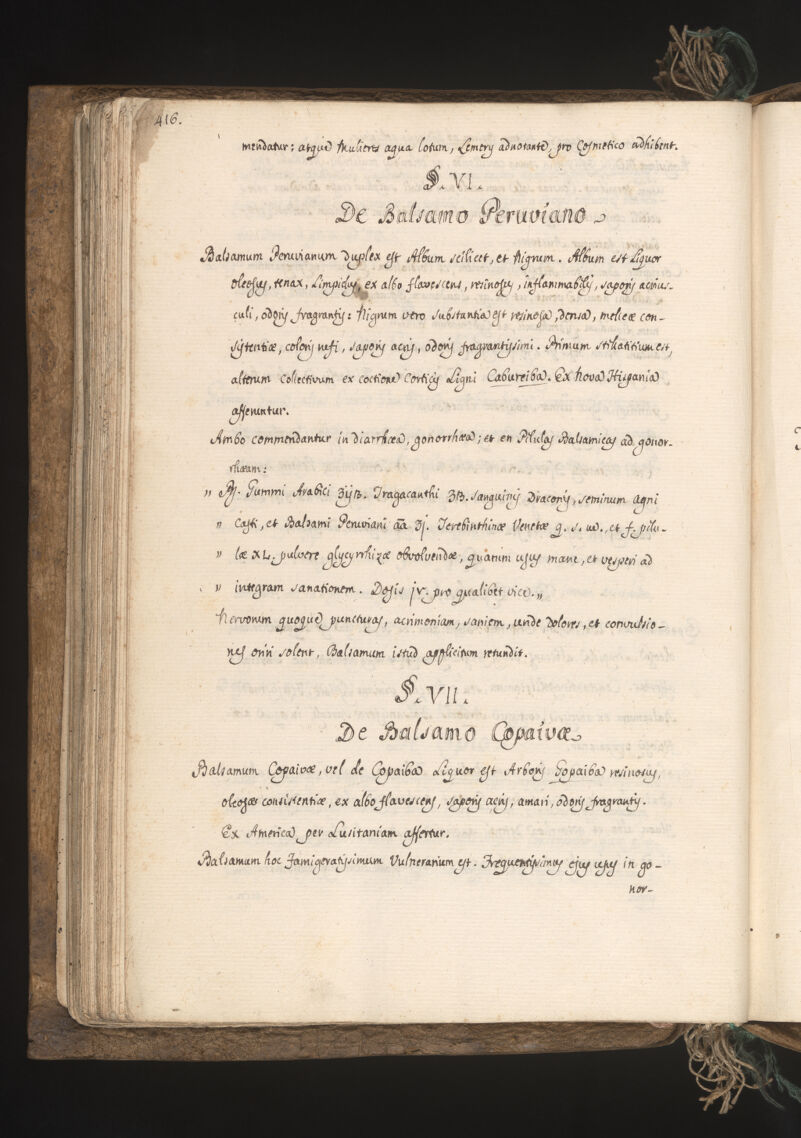 416.
mendatur: atque Mulieres aqua lotum, Lemery adnotante, pro Cosmetico adhibent.
§. VI.
De Balsamo Peruviano
Balsamum Peruvianum duplex est Album scilicet, et Nigrum. Album est Liquor
oleosus, tenax, Limpidus, ex albo flavescens, resinosus, inflammabilis, saporis acrius-
culi, odoris fragrantis: Nigrum vero substantia est resinosa, densa, melleæ con-
sistentiæ, coloris rufi, saporis acris, odoris fragrantissimi. Primum stillatitium est,
alterum Collectivum ex coctione Corticis Ligni Cabureiba. Ex Nova Hispania
afferuntur.
Ambo commendantur in diarrhœa, gonorrhœa; et en Pilulas Balsamicas ad gonor-
rhœam:
„ ℞. Gummi Arabici ʒijß. Tragacanthi ʒß. sanguinis Draconis, seminum agni
„ Casti, et Balsami Peruviani āā ʒj. Terebinthinæ Venetæ q. s. ut., et f. pilu-
„ læ XL. pulvere glycyrrhizæ obvolvendæ, quarum usus mane, et vesperi ad
„ integram sanationem. Dosis jv. pro qualibet vice.„
Nervorum quoque puncturas, acrimoniam, saniem, unde dolores, et convulsio-
nes oriri solent, Balsamum istud applicitum retundit.
§. VII.
De Balsamo Copaivæ
Balsamum Copaivæ, vel de Copaiba Liquor est Arboris Copaiba resinosus,
oleosæ consistentiæ, ex albo flavescens, saporis acris, amari, odoris fragrantis.
Ex America per Lusitaniam affertur.
Balsamum hoc famigeratissimum Vulnerarium est. Frequentissimus ejus usus in go-
nor-